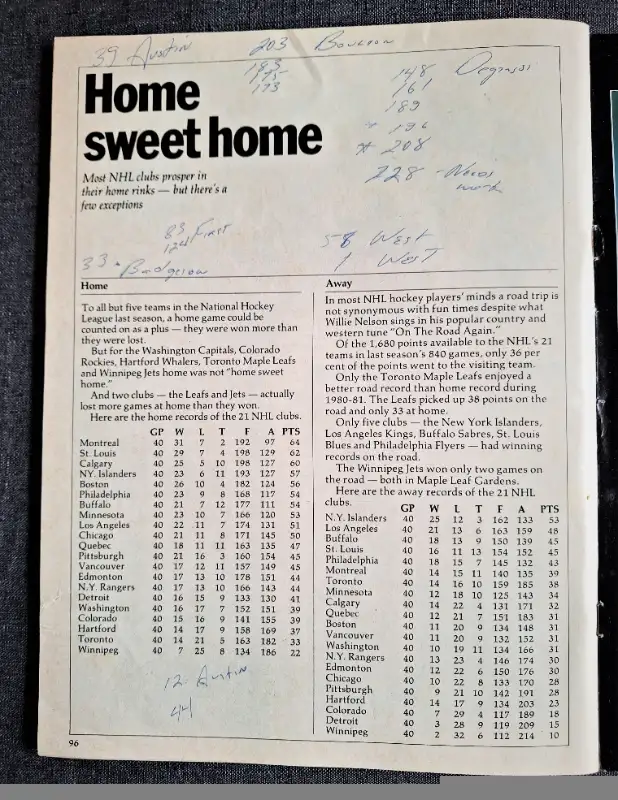 39 Austin 203 Bourdon
183
175
173
148 Deguisi
161
189
* 196
* 208
228 - Needs work
Home
sweet home
Most NHL clubs prosper in
their home rinks — but there's a
few exceptions
83 First
124
33 • Badgerow
58 West
1 West
Home
To all but five teams in the National Hockey
League last season, a home game could be
counted on as a plus — they were won more than
they were lost.
But for the Washington Capitals, Colorado
Rockies, Hartford Whalers, Toronto Maple Leafs
and Winnipeg Jets home was not "home sweet
home."
And two clubs — the Leafs and Jets — actually
lost more games at home than they won.
Here are the home records of the 21 NHL clubs.
GP W L T F A PTS
Montreal 40 31 7 2 192 97 64
St. Louis 40 29 7 4 198 129 62
Calgary 40 25 5 10 198 127 60
NY. Islanders 40 23 6 11 193 127 57
Boston 40 26 10 4 182 124 56
Philadelphia 40 23 9 8 168 117 54
Buffalo 40 21 7 12 177 111 54
Minnesota 40 23 10 7 166 120 53
Los Angeles 40 22 11 7 174 131 51
Chicago 40 21 11 8 171 145 50
Quebec 40 18 11 11 163 135 47
Pittsburgh 40 21 16 3 160 154 45
Vancouver 40 17 12 11 157 149 45
Edmonton 40 17 13 10 178 151 44
N.Y. Rangers 40 17 13 10 166 143 44
Detroit 40 16 15 9 133 130 41
Washington 40 16 17 7 152 151 39
Colorado 40 15 16 9 141 155 39
Hartford 40 14 17 9 158 169 37
Toronto 40 14 21 5 163 182 33
Winnipeg 40 7 25 8 134 186 22
12 Austin
44
96
Away
In most NHL hockey players' minds a road trip is
not synonymous with fun times despite what
Willie Nelson sings in his popular country and
western tune "On The Road Again."
Of the 1,680 points available to the NHL's 21
teams in last season's 840 games, only 36 per
cent of the points went to the visiting team.
Only the Toronto Maple Leafs enjoyed a
better road record than home record during
1980-81. The Leafs picked up 38 points on the
road and only 33 at home.
Only five clubs — the New York Islanders,
Los Angeles Kings, Buffalo Sabres, St. Louis
Blues and Philadelphia Flyers — had winning
records on the road.
The Winnipeg Jets won only two games on
the road — both in Maple Leaf Gardens.
Here are the away records of the 21 NHL
clubs.
GP W L T F A PTS
N.Y. Islanders 40 25 12 3 162 133 53
Los Angeles 40 21 13 6 163 159 48
Buffalo 40 18 13 9 150 139 45
St. Louis 40 16 11 13 154 152 45
Philadelphia 40 18 15 7 145 132 43
Montreal 40 14 15 11 140 135 39
Toronto 40 14 16 10 159 185 38
Minnesota 40 12 18 10 125 143 34
Calgary 40 14 22 4 131 171 32
Quebec 40 12 21 7 151 183 31
Boston 40 11 20 9 134 148 31
Vancouver 40 11 20 9 132 152 31
Washington 40 10 19 11 134 166 31
N.Y. Rangers 40 13 23 4 146 174 30
Edmonton 40 12 22 6 150 176 30
Chicago 40 10 22 8 133 170 28
Pittsburgh 40 9 21 10 142 191 28
Hartford 40 14 17 9 134 203 23
Colorado 40 7 29 4 117 189 18
Detroit 40 3 28 9 119 209 15
Winnipeg 40 2 32 6 112 214 10